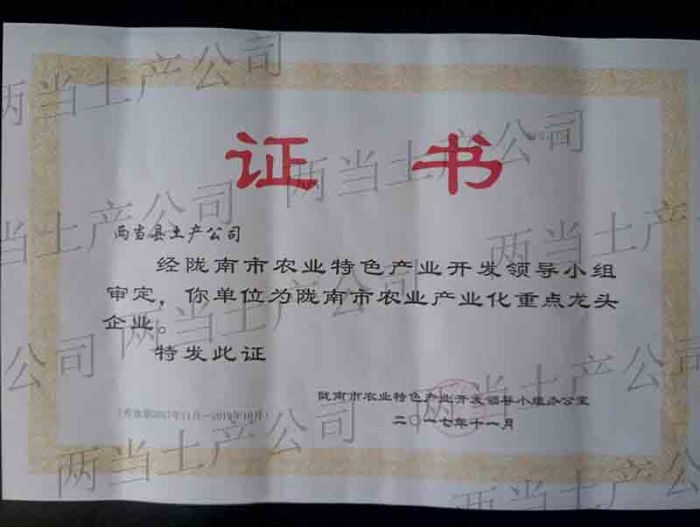 证 书
两当县土产公司
经陇南市农业特色产业开发领导小组
审定，你单位为陇南市农业产业化重点龙头
企业。
特发此证
陇南市农业特色产业开发领导小组办公室
二〇一七年十一月
（有效期2017年11月—2019年10月）
两当土产公司
两当土产公司
两当土产公司
两当土产公司
两当土产公司
公司
两当土产公司
两当土产公司
两当土产公司